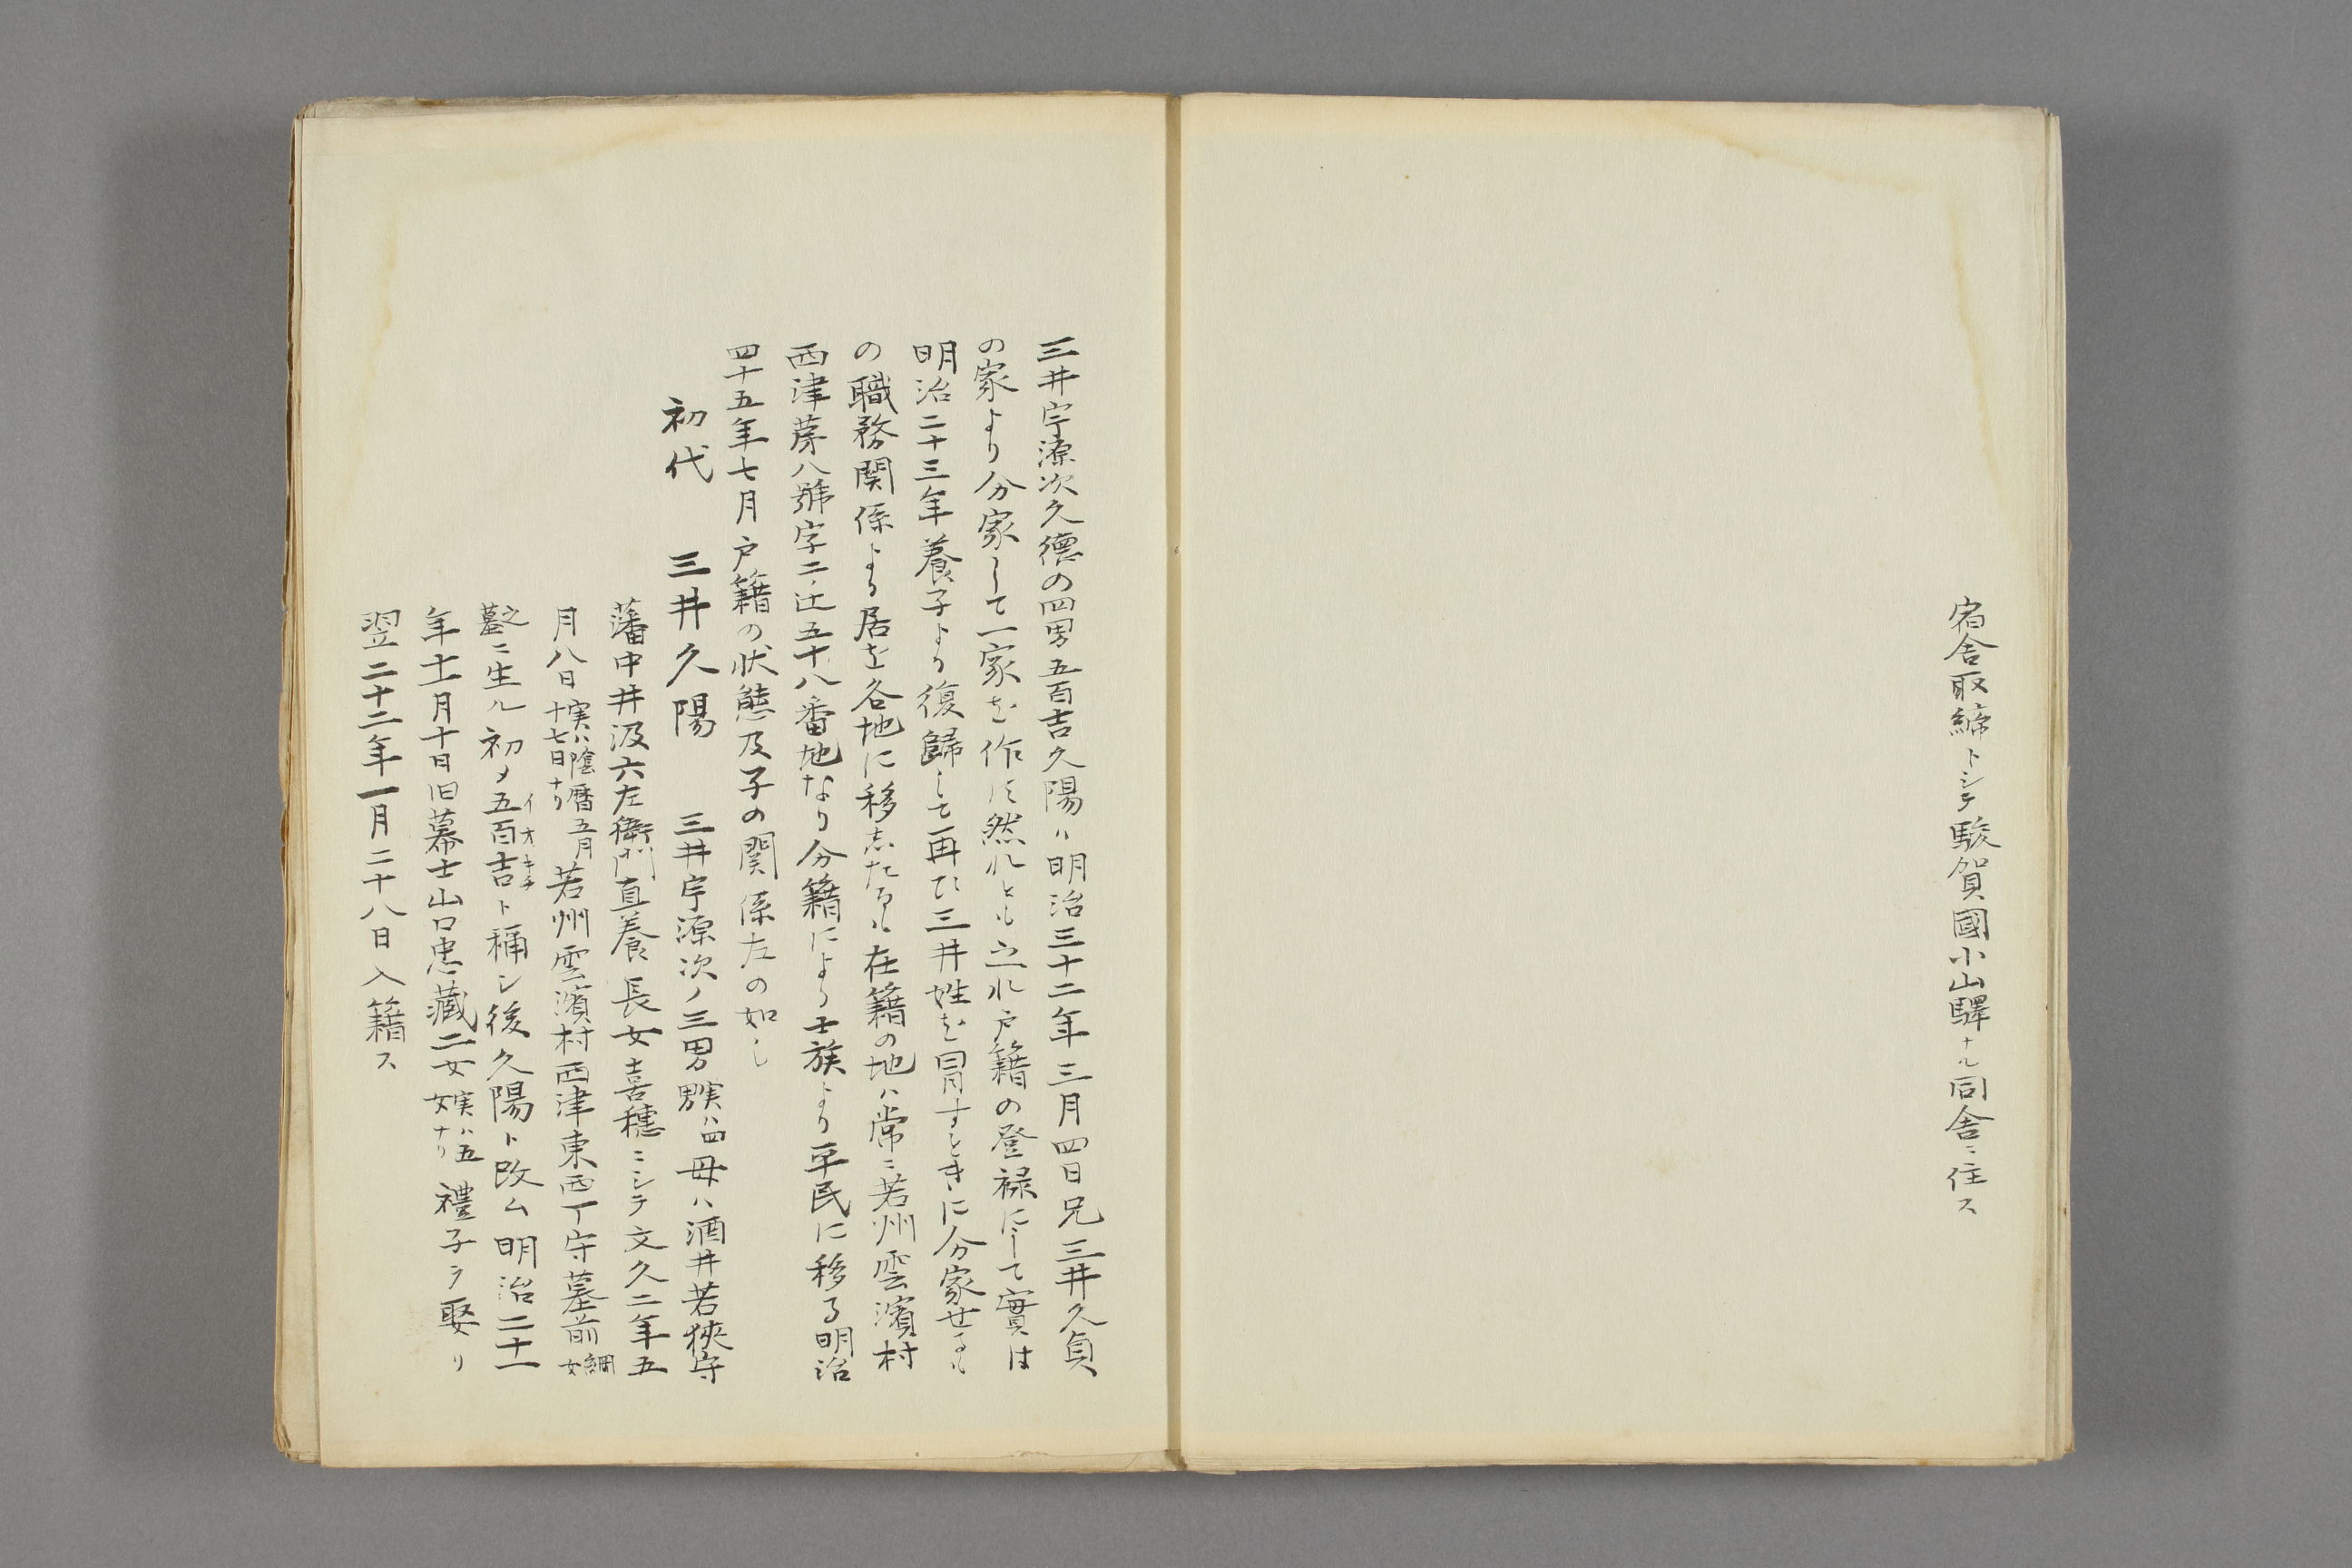 宿舎取締トシテ駿賀國小山驛ナル同舎ニ住ス
三井宇源次久德の四男五百吉久陽ハ明治三十二年三月四日兄三井久貞
の家より分家して一家を作す然れとも之れ戸籍の登禄にして實は
明治二十三年養子より復歸して再ひ三井姓を冐すときに分家せるも
の職務関係より居を各地に移志たるも在籍の地ハ常ニ若州雲濱村
西津㐧八號字二ノ辻五十八番地なり分籍により士族より平民に移る明治
四十五年七月戸籍の状態及子の関係左の如し
初代　三井久陽　三井宇源次ノ三男実ハ四男母ハ酒井若狹守
藩中井汲六左衛門直養長女喜穗ニシテ文久二年五
月八日実ハ陰暦五月十七日ナリ若州雲濱村西津東西丁守墓前綱女
之墓ニ生ル初メ五百吉イオキチト稱シ後久陽ト改ム明治二十一
年十一月十日旧幕士山口忠藏二女実ハ五女ナリ禮子ヲ娶リ
翌二十二年一月二十八日入籍ス